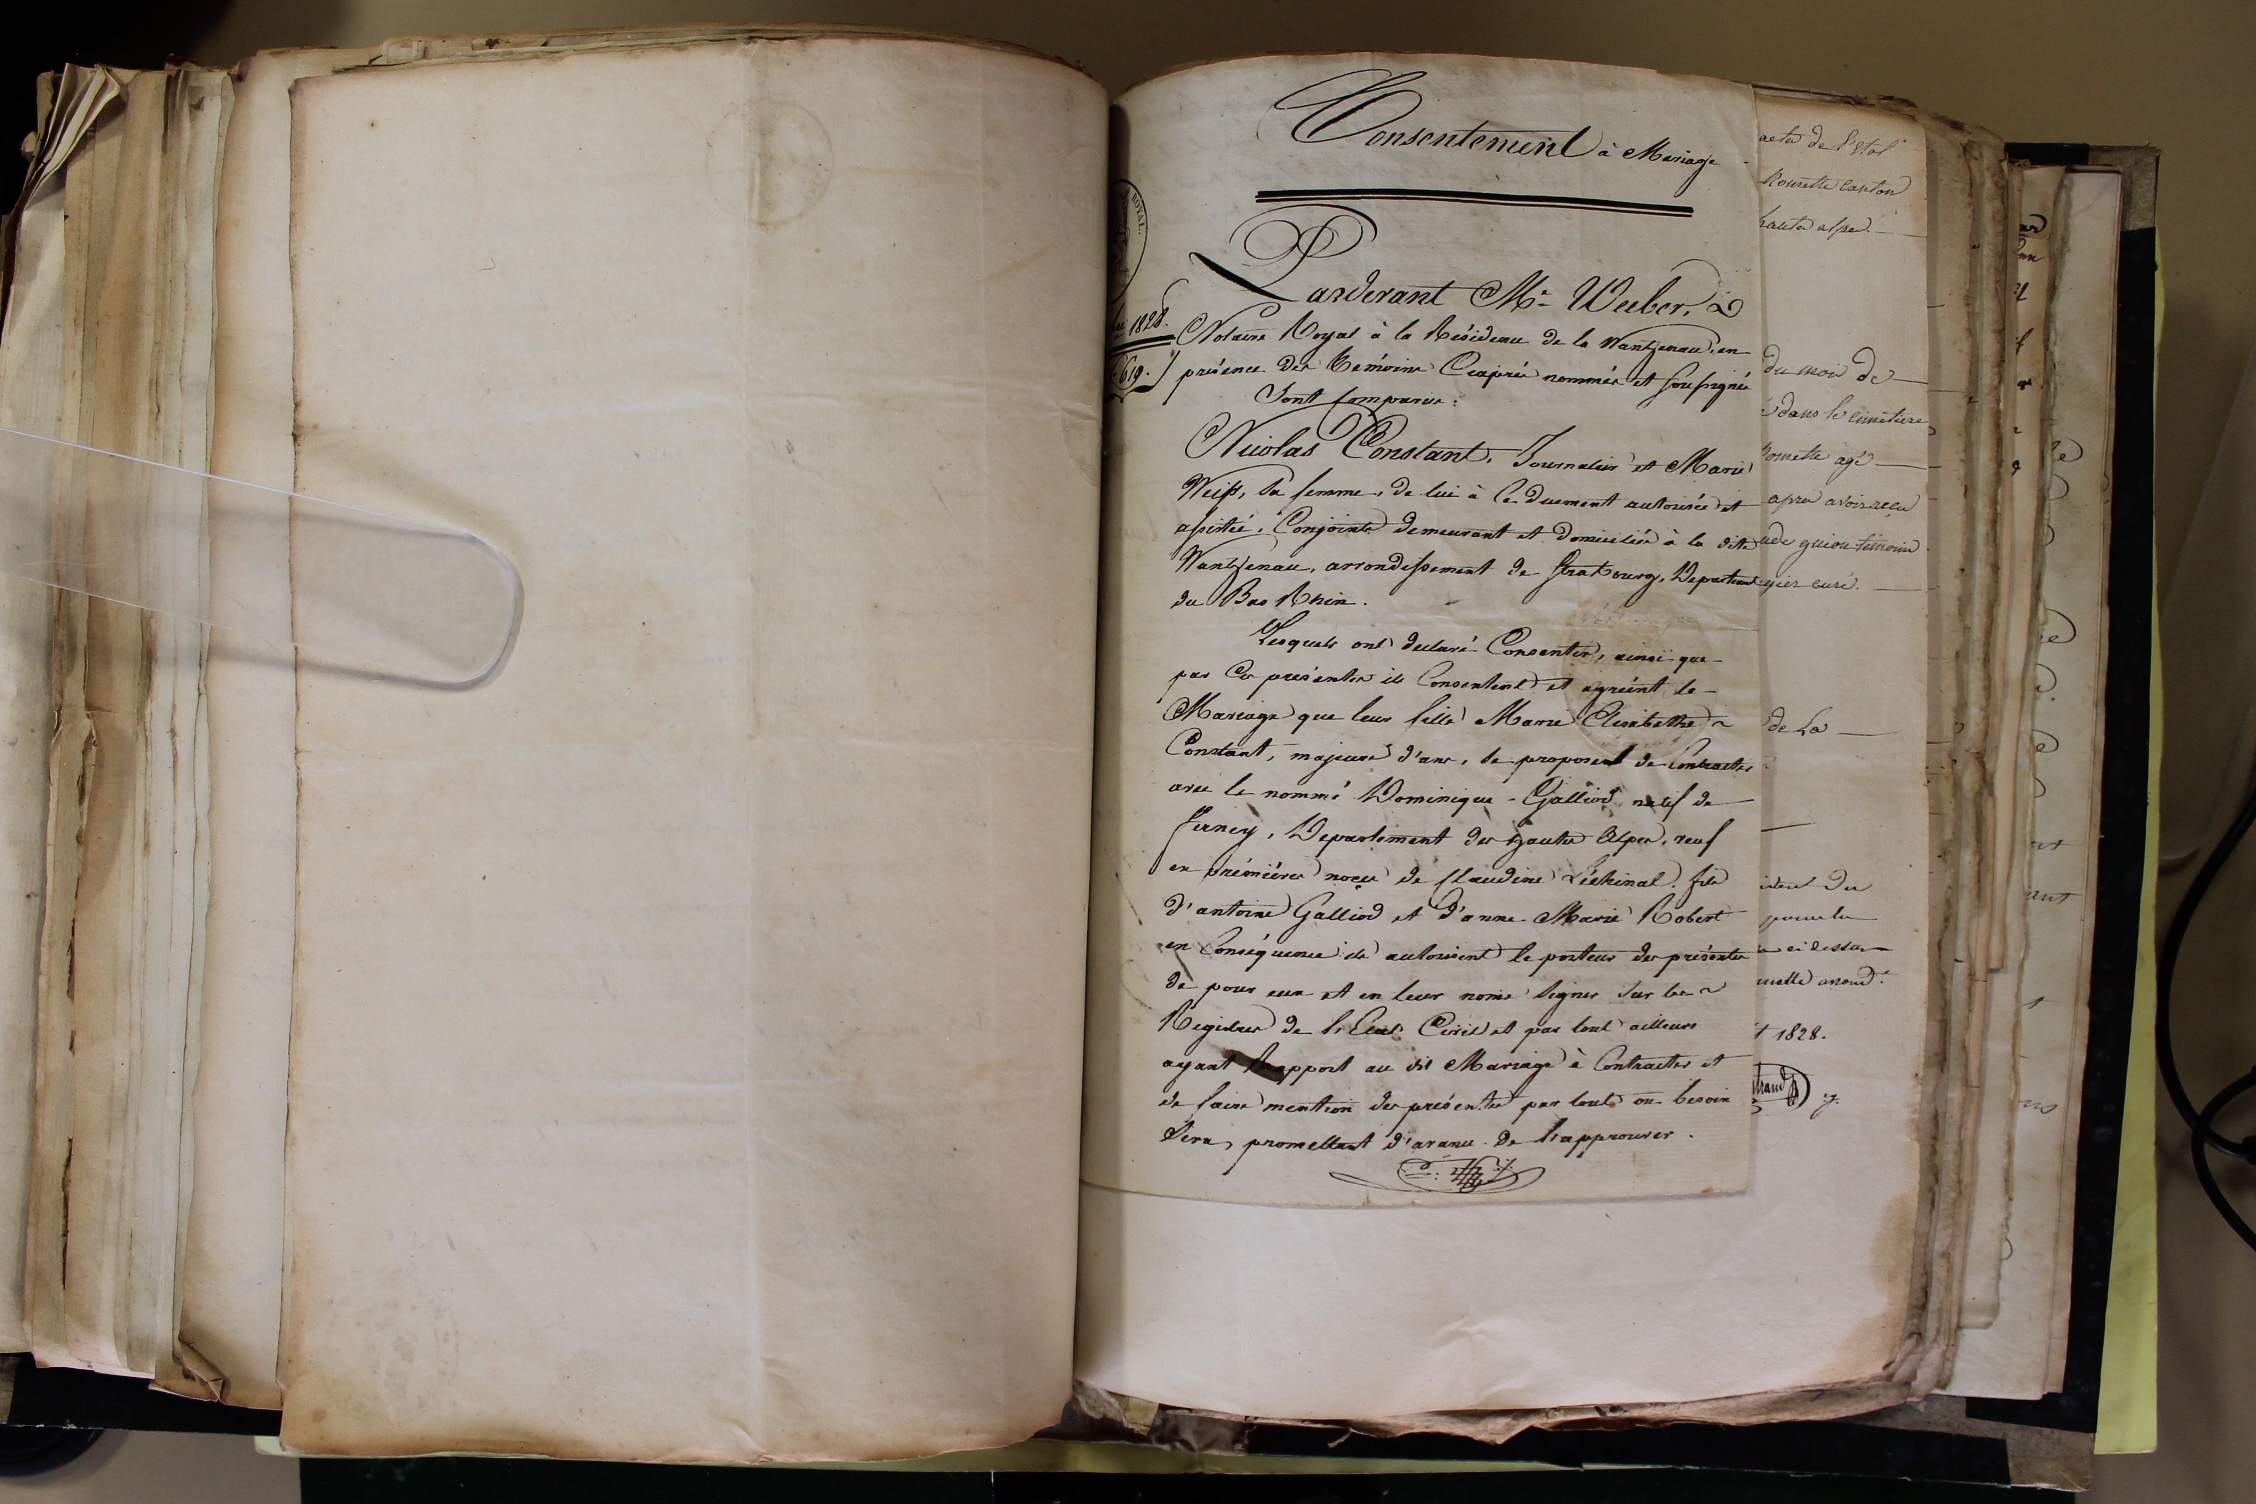 Consentement à Mariage
Pardevant Me Weber,
Notaire Royal à la Résidence de la Wantzenau, en
présence des témoins Ciaprès nommés et soussignés
Sont Comparus :
Nicolas Constant, Journalier et Marie
Weiss, sa femme, de lui à Ce duement autorisée et
assistée, Conjoints demeurant et domiciliés à la dite
Wantzenau, arrondissement de Strasbourg, Département
du Bas Rhin.
Lesquels ont déclaré Consentir, ainsi que
par Ces présentes ils Consentent et agréent le
Mariage que leur fille Marie Elisabethe
Constant, majeure d'ans, se proposent de Contracter
avec le nommé Dominique Galliod, natif de
Département des hautes Alpes, veuf
en prémières noces de Claudine fils
d'antoine Galliod et d'anne Marie Robert
en Conséquence ils autorisent le porteur des présentes
de pour eux et en leur noms signer sur les
Registres de l'Etat Civil et par tout ailleurs
ayant Rapport au dit Mariage à Contracter et
de faire mention des présentes par tout ou besoin
sera, promettant d'avance de l'approuver.
ROYAL.
1828.
619.
acte de l'Etat
canton
hautes alpes.
du mois de
dans le cimetiere
agé
apres avoir recu
guiou témoin
curé.
de La
du
pour la
ci dessus
1828.